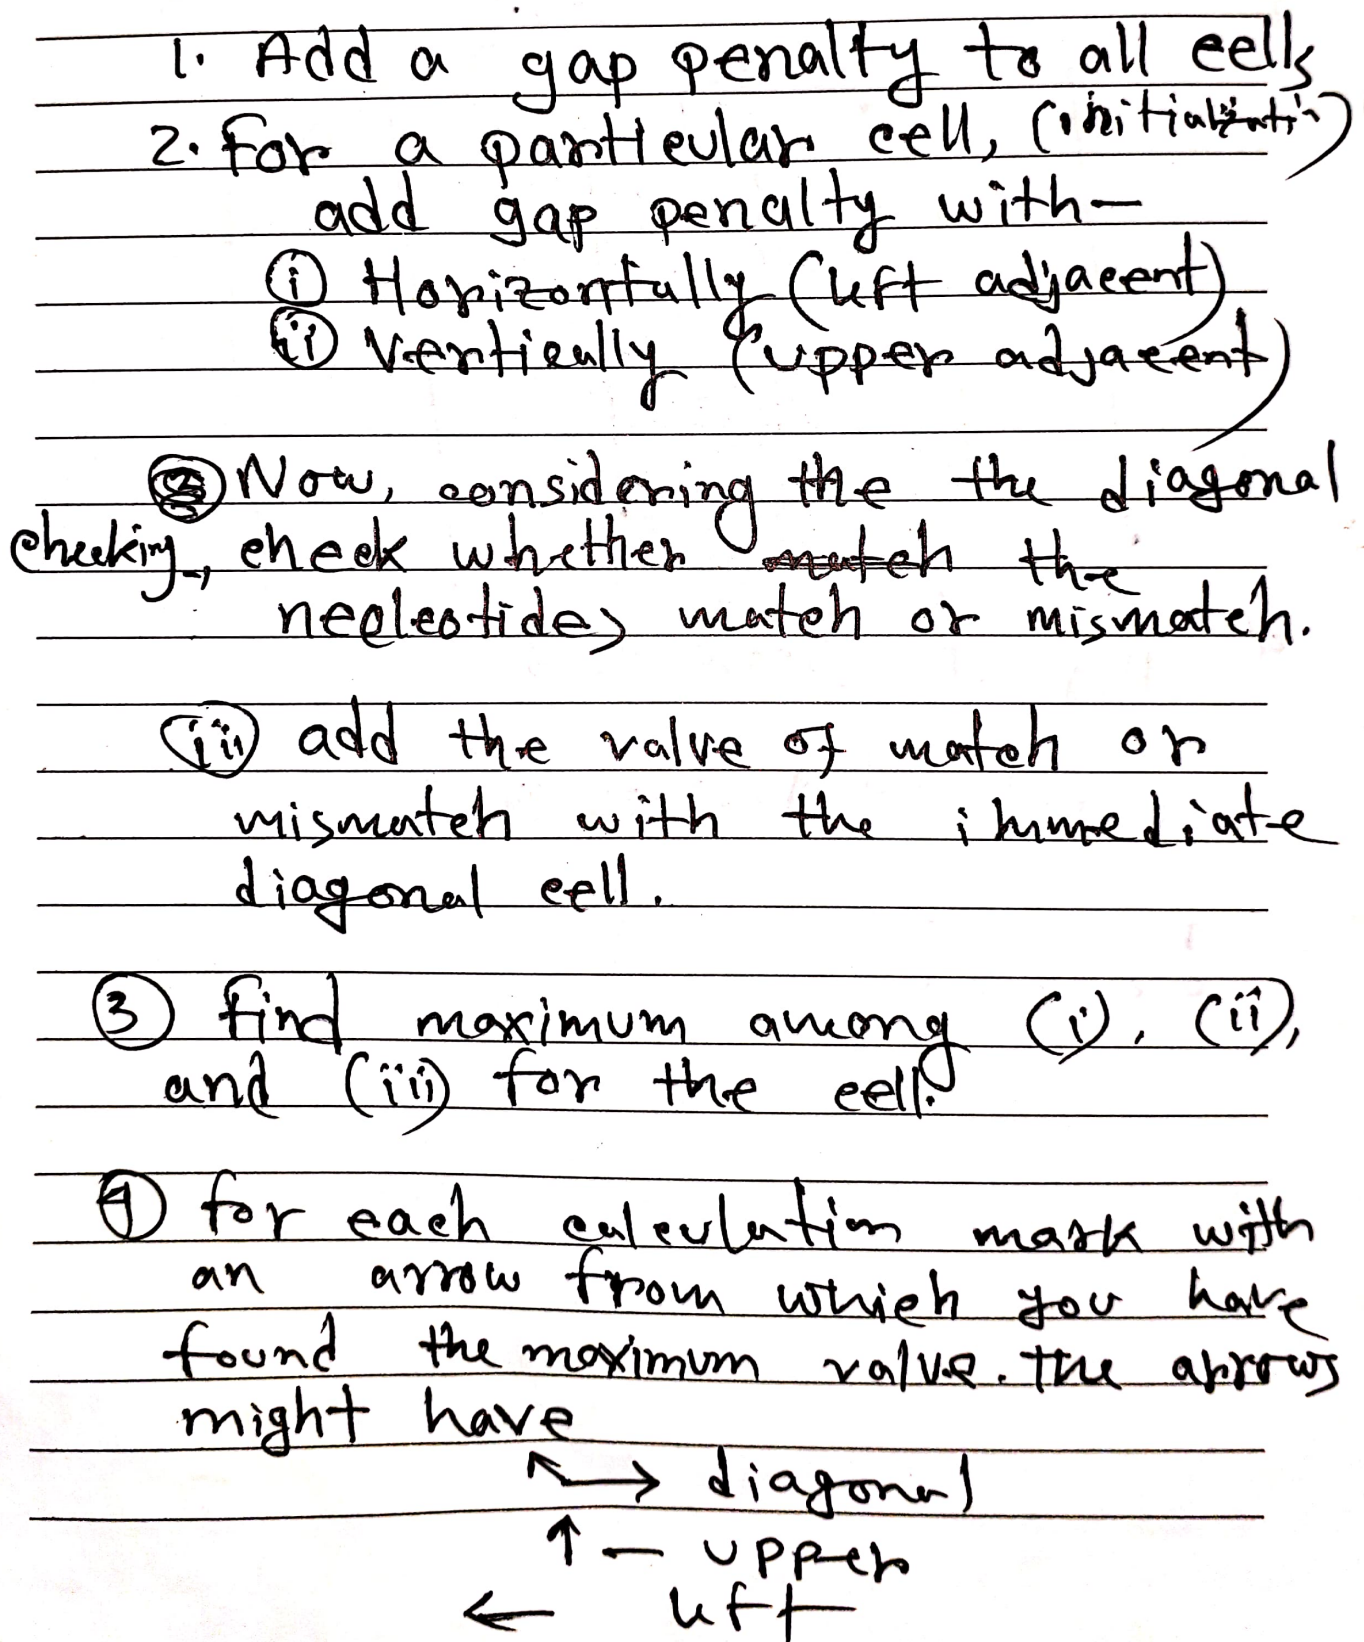 1. Add a gap penalty to all cells
2. For a particular cell, (initialization)
add gap penalty with—
(i) Horizontally (left adjacent)
(ii) Vertically (upper adjacent)
Now, considering the the diagonal
checking, check whether match the
necleotides match or mismatch.
(iii) add the value of match or
mismatch with the immediate
diagonal cell.
(3) find maximum among (i), (ii),
and (iii) for the cell.
(4) for each calculation mark with
an arrow from which you have
found the maximum value. The arrows
might have
↖→ diagonal
↑ — upper
← left